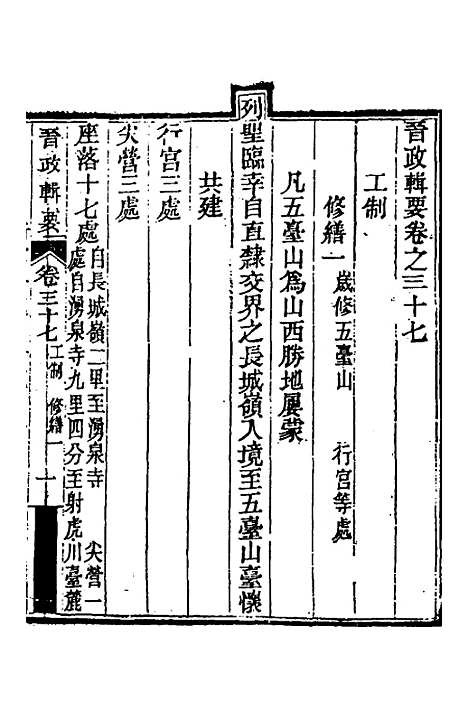 晉政輯要卷之三十七
工制
修繕一 歲修五臺山 行宮等處
凡五臺山爲山西勝地屢蒙
列聖臨幸自直隸交界之長城嶺入境至五臺山臺懷
共建
行宮三處
尖營三處
座落十七處 自長城嶺二里至湧泉寺 尖營一
處自湧泉寺九里四分至射虎川臺麓
晉政輯要 卷三十七 工制 修繕一 一